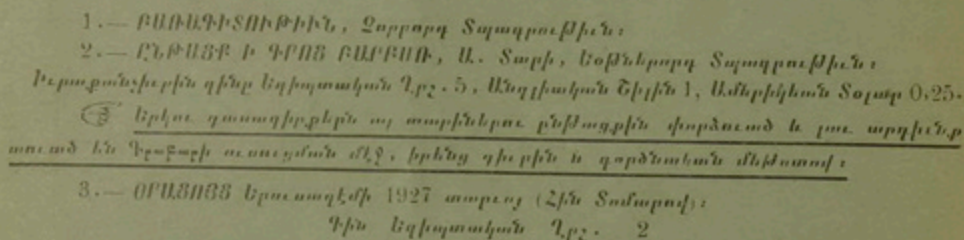 1.— ԲԱՌԱԳԻՏՈՒԹԻՒՆ, Չորրորդ Տպագրութիւն։
2.— ԸՆԹԱՑՔ Ի ԳՐՈՑ ԲԱՐԲԱՌ, Ա. Տարի, Եօթներորդ Տպագրութիւն։
Իւրաքանչիւրին գինը Եգիպտական Ղրշ. 5, Անգլիական Շիլին 1, Ամերիկեան Տօլար 0,25.
Երկու դասագիրքերն ալ տարիներու ընթացքին փորձուած և լաւ արդիւնք
տուած են Գրաբարի ուսուցման մէջ, իրենց դիւրին և գործնական մեթոտով։
3.— ՕՐԱՑՈՅՑ Երուսաղէմի 1927 տարւոյ (Հին Տոմարով)։
Գին Եգիպտական Ղրշ. 2